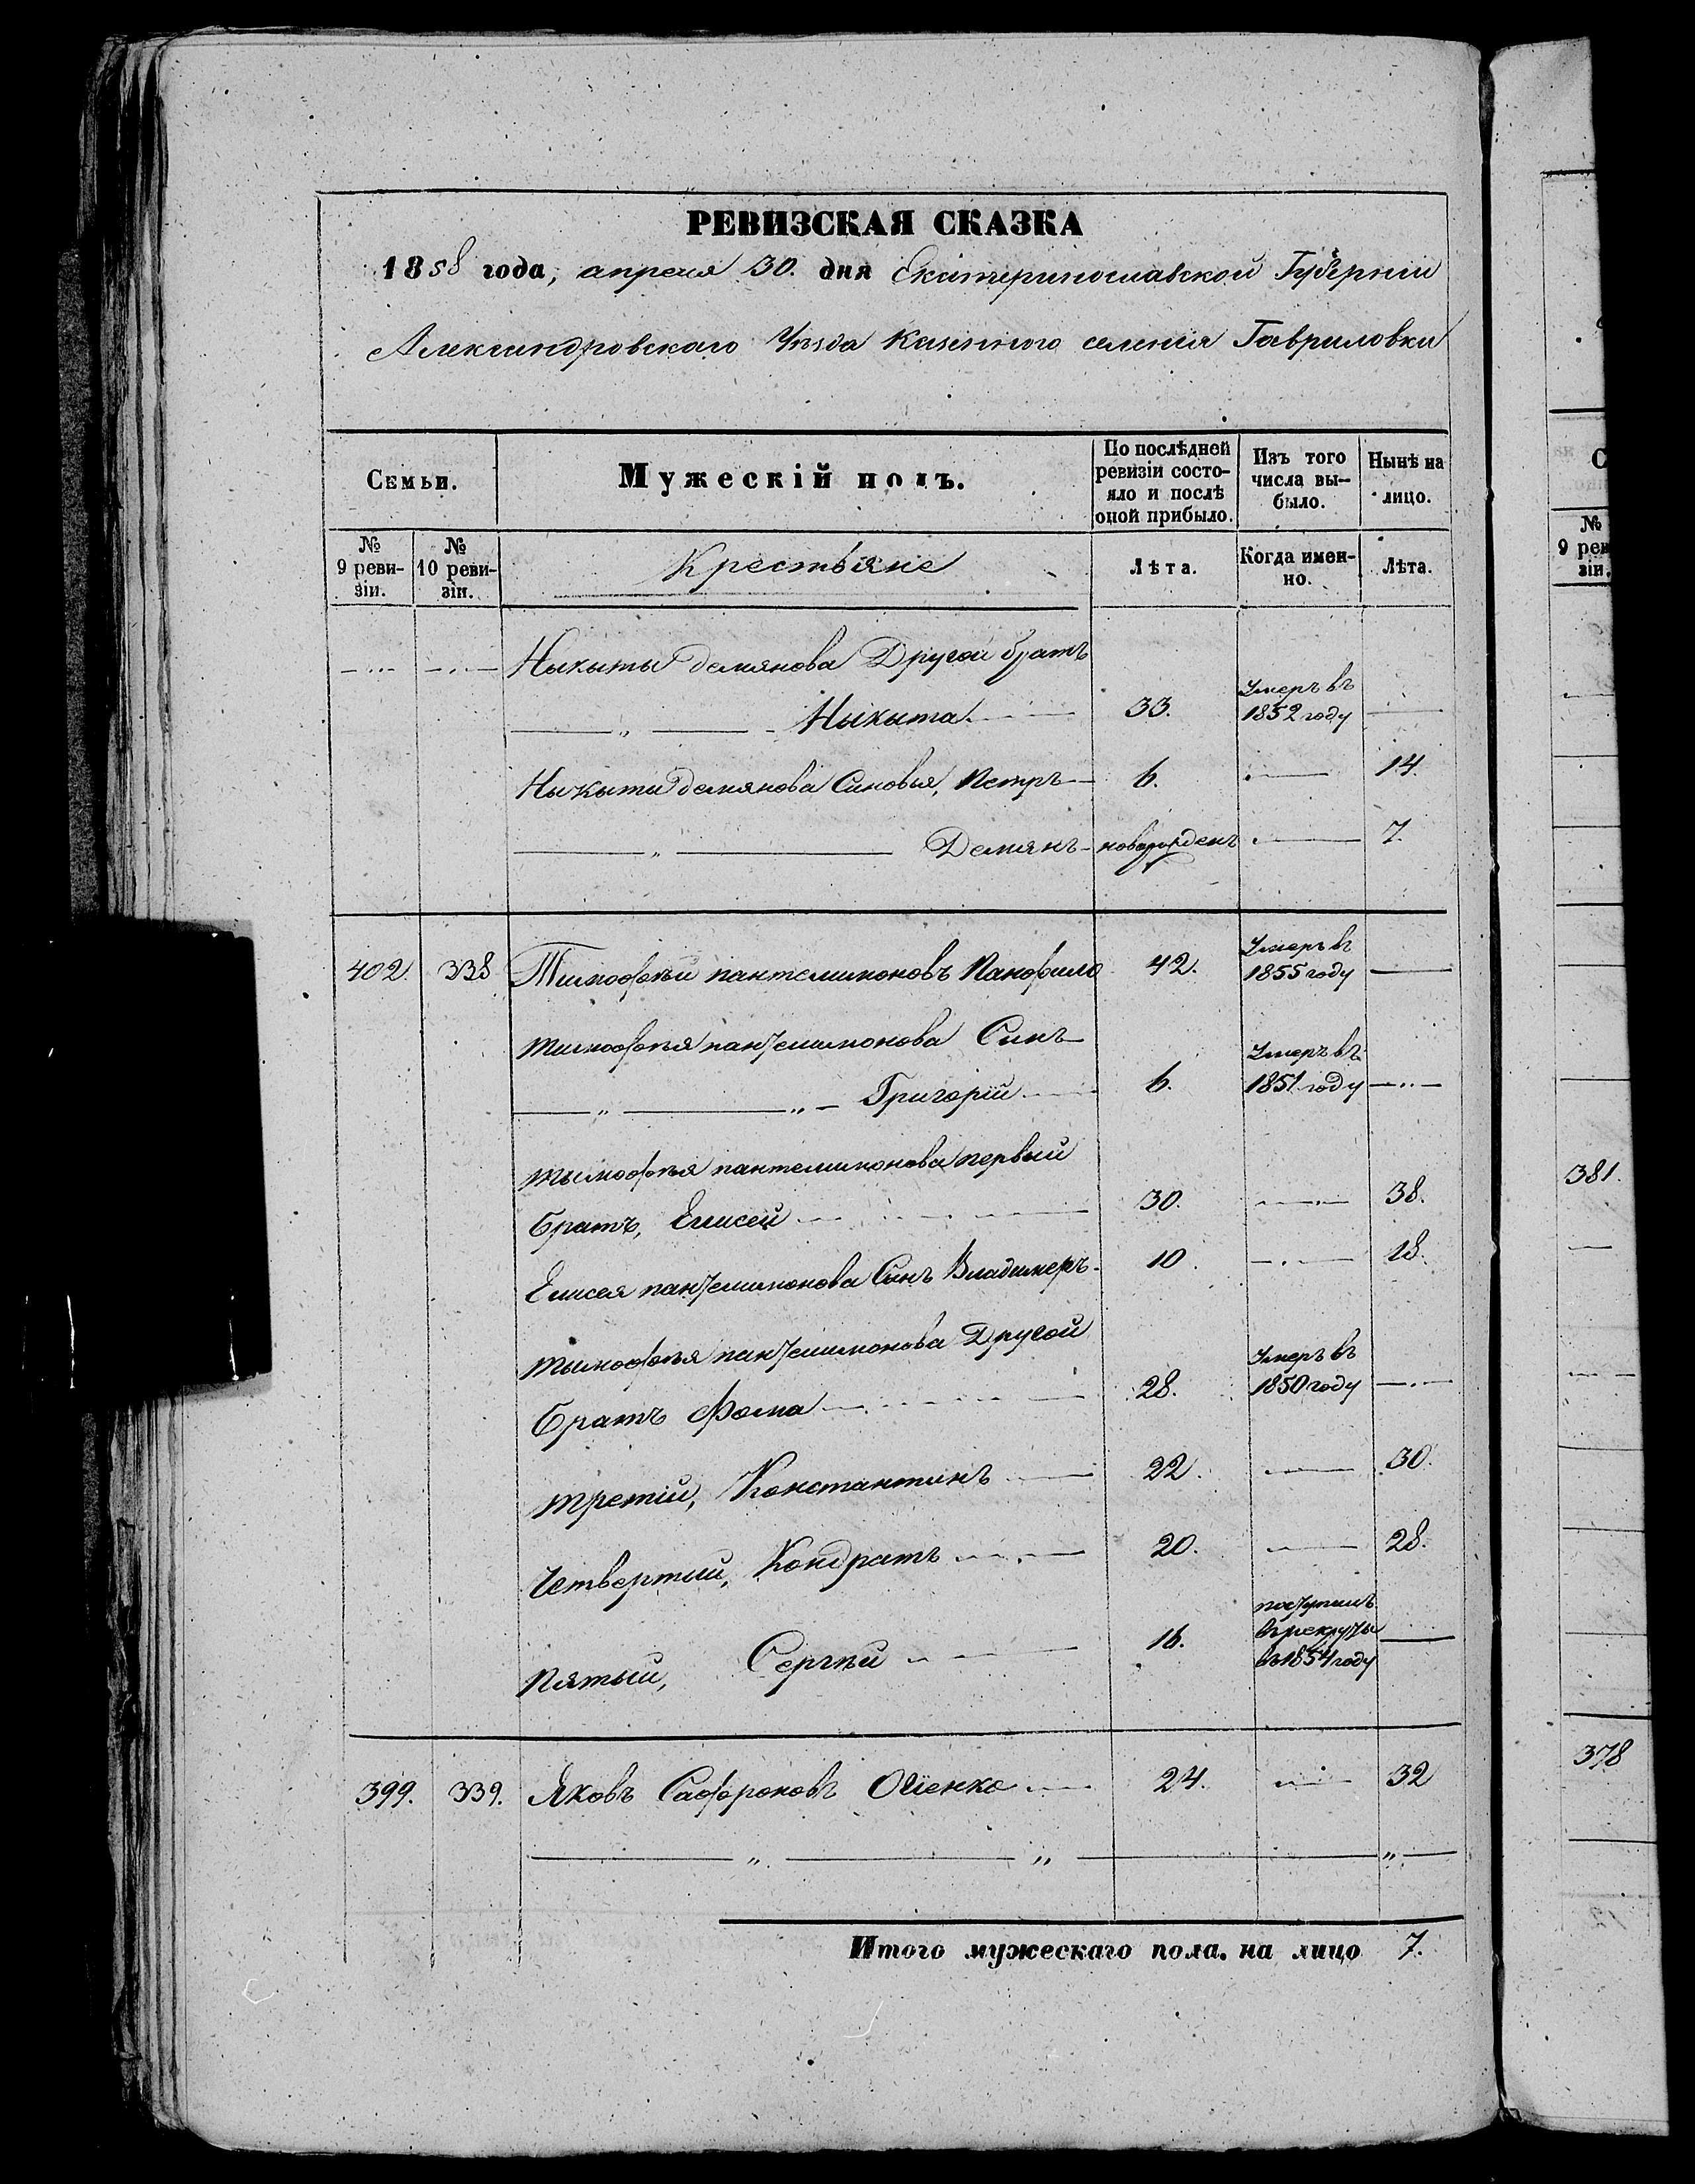 РЕВИЗСКАЯ СКАЗКА
1858 года, апреля 30. дня Екатеринославской Губернии
Александровскаго Уѣзда Казеннаго селения Гавриловки
Семьи.
Мужескій полъ.
По послѣдней ревизіи состо-яло и послѣ оной прибыло.
Изъ того числа вы-было.
Нынѣ на лицо.
№ 9 реви-зіи.
№ 10 реви-зіи.
Крестьяне
Лѣта.
Когда имен-но.
Лѣта.
Ныкыты демянова Другой братъ
Ныкыта 33. Умеръ въ 1852 году
Ныкыты демянова Синовья, Петръ 6. 14.
Демянъ новорожденъ 7.
402. 338 Тимофѣй пантелимоновъ Панфило 42. Умеръ въ 1855 году
тимофѣя пантелимонова Синъ
Григорій 6. Умеръ въ 1851 году
тымофѣя пантелимонова первый
братъ, Елисей 30. 38.
Елисея пантелимонова Сынъ Владимеръ 10. 18.
тымофѣя пантелимонова Другой
братъ Фома 28. Умеръ въ 1850 году
третий, Константинъ 22. 30.
Четвертый, Кондратъ 20. 28.
Пятый, Сергѣй 16. поступилъ в рекруты въ 1854 году
399. 339. Яковъ Сафроновъ 24. 32
Итого мужескаго пола на лицо 7.
С
№
9 рев
зіи.
381.
378